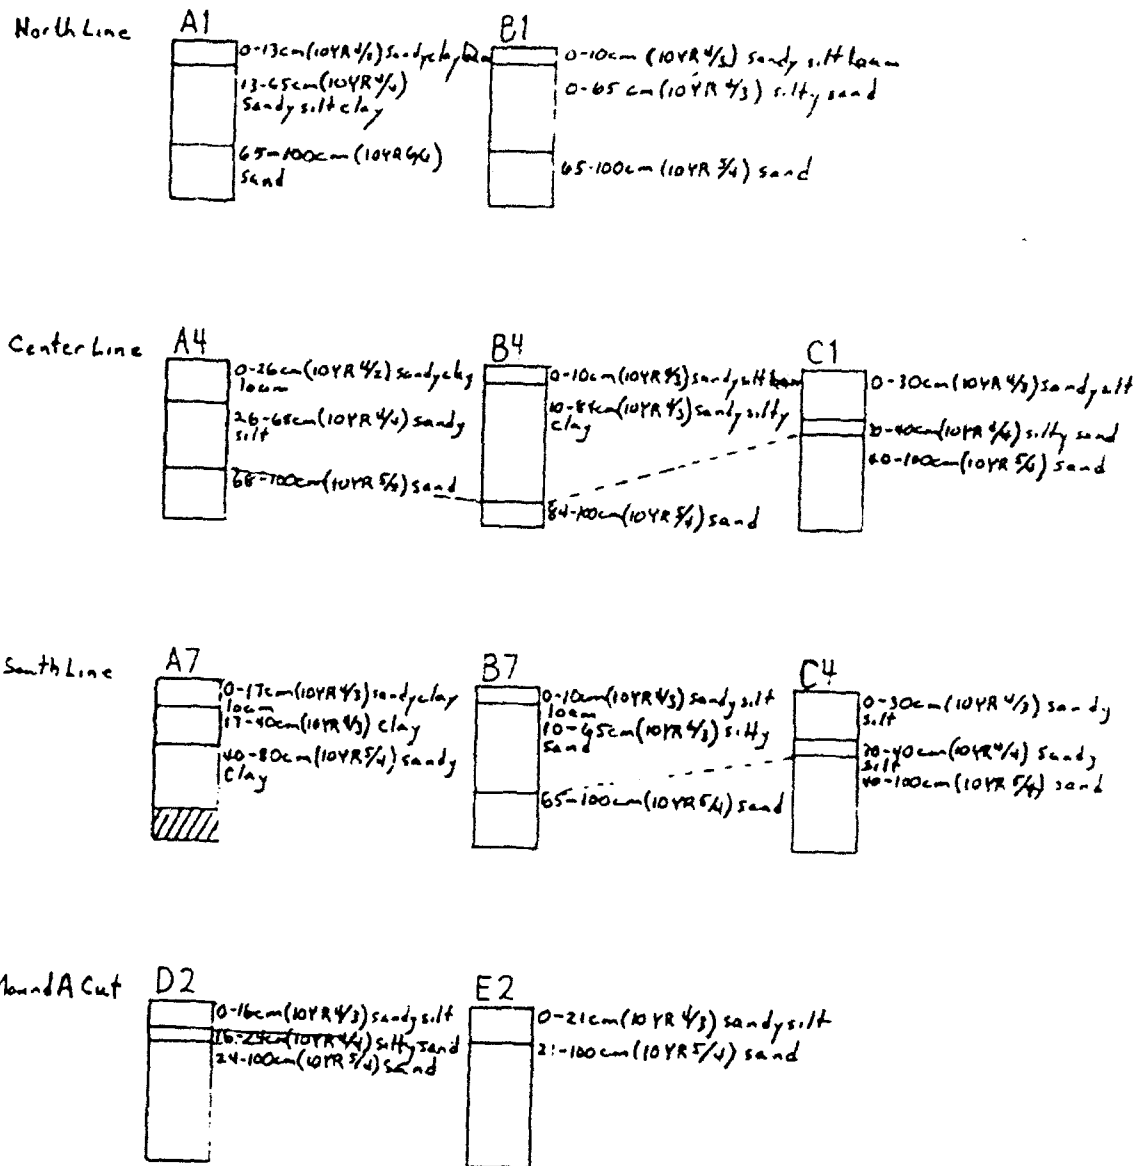 North Line
A1
0-13cm (10YR 4/2) sandy clay loam
13-65cm (10YR 4/4)
sandy silt clay
65-100cm (10YR 6/4)
sand
B1
0-10cm (10YR 4/3) sandy silt loam
0-65 cm (10YR 4/3) silty sand
65-100cm (10YR 5/4) sand
Center Line
A4
0-26cm (10YR 4/2) sandy clay
loam
26-68cm (10YR 4/4) sandy
silt
68-100cm (10YR 5/3) sand
B4
0-10cm (10YR 4/3) sandy silt loam
10-84cm (10YR 4/3) sandy silty
clay
84-100cm (10YR 5/4) sand
C1
0-30cm (10YR 4/3) sandy silt
30-40cm (10YR 4/4) silty sand
40-100cm (10YR 5/6) sand
South Line
A7
0-17cm (10YR 4/3) sandy clay
loam
17-40cm (10YR 4/3) clay
40-80cm (10YR 5/4) sandy
clay
B7
0-10cm (10YR 4/3) sandy silt
loam
10-65cm (10YR 4/3) silty
sand
65-100cm (10YR 5/4) sand
C4
0-30cm (10YR 4/3) sandy
silt
30-40cm (10YR 4/4) sandy
silt
40-100cm (10YR 5/4) sand
Mound A Cut
D2
0-16cm (10YR 4/3) sandy silt
16-24cm (10YR 4/4) silty sand
24-100cm (10YR 5/4) sand
E2
0-21cm (10YR 4/3) sandy silt
21-100cm (10YR 5/4) sand